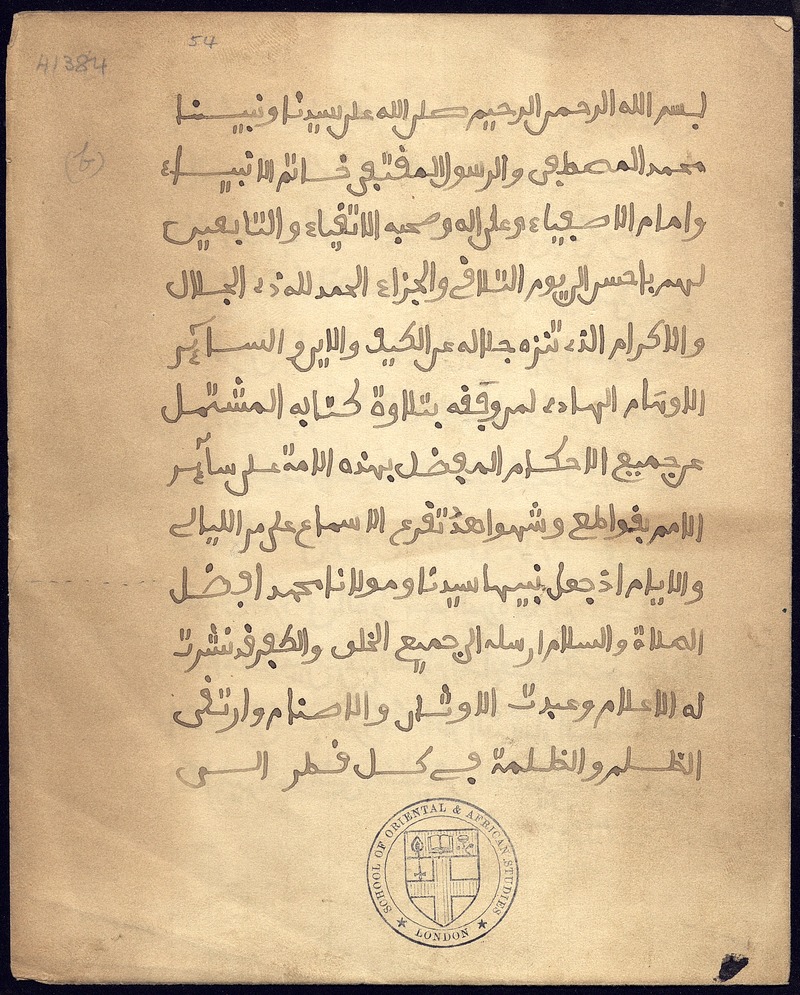 54
41384
(b)
بسم الله الرحمن الرحيم صلى الله على سيدنا ونبينا
محمد المصطفى والرسول المقتفى خاتم الانبياء
وامام الاصفياء وعلى اله وصحبه الاتقياء والتابعين
لهم باحسن الى يوم التلاقى والجزاء الحمد لله ذى الجلال
والاكرام الذى تنزه جلاله عن الكيف والاين و السائر
الاوهام الهادى لمن وفقه بتلاوة كتابه المشتمل
عن جميع الاحكام المفضل بهذه الامة على سائر
الامم بقواطع وشهوا تقرع الاسماع على مر الليالى
والايام اذ جعل نبيها سيدنا ومولانا محمد افضل
الصلاة والسلام ارسله الى جميع الخلق والكفر قد نشرت
له الاعلام وعبدت الاوثان والاصنام وارتقى
الظلم والظلمة فى كل قطر الى
SCHOOL OF ORIENTAL & AFRICAN STUDIES
LONDON